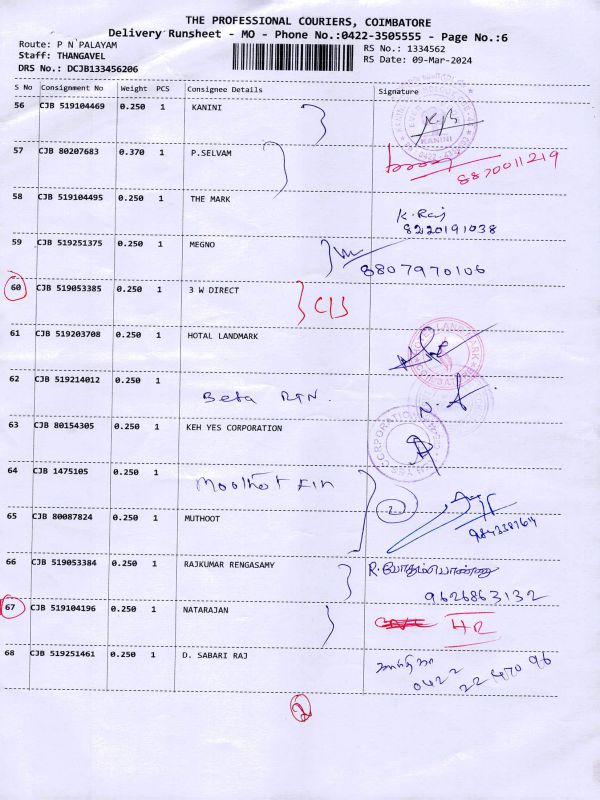 THE PROFESSIONAL COURIERS, COIMBATORE
Delivery Runsheet - MO - Phone No.:0422-3505555 - Page No.:6
Route: P N PALAYAM
RS No.: 1334562
Staff: THANGAVEL
RS Date: 09-Mar-2024
DRS No.: DCJB133456206
S No Consignment No Weight PCS Consignee Details Signature
56 CJB 519104469 0.250 1 KANINI
KANINI
57 CJB 80207683 0.370 1 P.SELVAM
8870011219
58 CJB 519104495 0.250 1 THE MARK
K.Raj
8220191038
59 CJB 519251375 0.250 1 MEGNO
8807970106
60 CJB 519053385 0.250 1 3 W DIRECT
61 CJB 519203708 0.250 1 HOTAL LANDMARK
62 CJB 519214012 0.250 1
Beta
63 CJB 80154305 0.250 1 KEH YES CORPORATION
CORPORATION
64 CJB 1475105 0.250 1
2
65 CJB 80087824 0.250 1 MUTHOOT
66 CJB 519053384 0.250 1 RAJKUMAR RENGASAMY
9626863132
67 CJB 519104196 0.250 1 NATARAJAN
68 CJB 519251461 0.250 1 D. SABARI RAJ
0422
22 47096
2